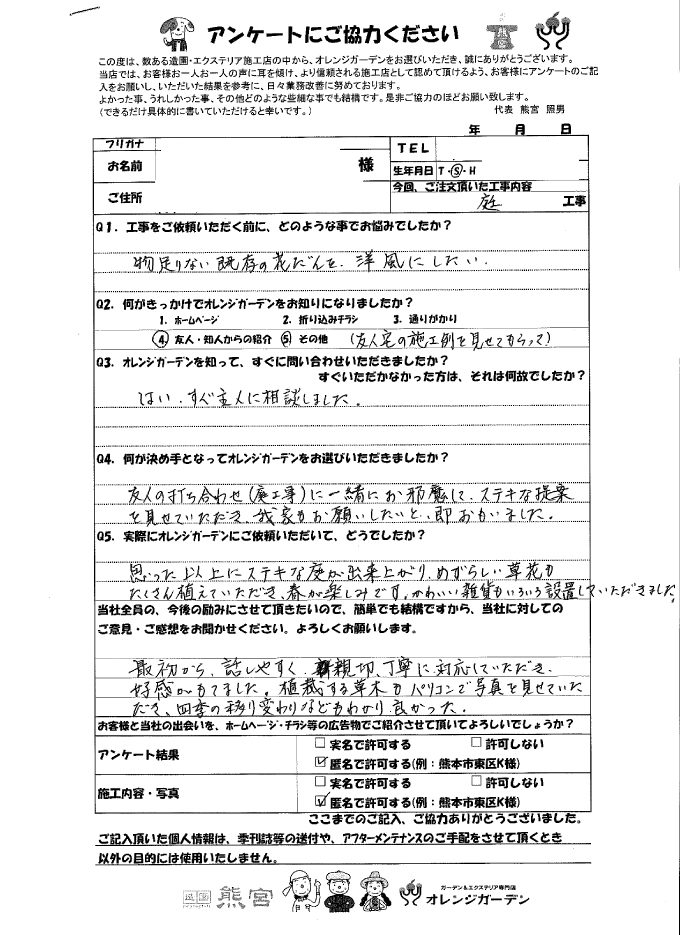 アンケートにご協力ください
この度は、数ある造園・エクステリア施工店の中から、オレンジガーデンをお選びいただき、誠にありがとうございます。
当店では、お客様お一人お一人の声に耳を傾け、より信頼される施工店として認めて頂けるよう、お客様にアンケートのご記
入をお願いし、いただいた結果を参考に、日々業務改善に努めております。
よかった事、うれしかった事、その他どのような些細な事でも結構です。是非ご協力のほどお願い致します。
(できるだけ具体的に書いていただけると幸いです。)
代表 熊宮 照男
年 月 日
フリガナ
お名前 様
TEL
生年月日 T・S・H
ご住所
今回、ご注文頂いた工事内容
庭 工事
Q1. 工事をご依頼いただく前に、どのような事でお悩みでしたか?
物足りない既存の花だんを、洋風にしたい.
Q2. 何がきっかけでオレンジガーデンをお知りになりましたか?
1. ホームページ 2. 折り込みチラシ 3. 通りがかり
4. 友人・知人からの紹介 5. その他 (友人宅の施工例を見せてもらって)
Q3. オレンジガーデンを知って、すぐに問い合わせいただきましたか?
すぐいただかなかった方は、それは何故でしたか?
はい.すぐ主人に相談しました。
Q4. 何が決め手となってオレンジガーデンをお選びいただきましたか?
友人の打ち合わせ(庭工事)に一緒にお邪魔して、ステキな提案
を見せていただき、我家もお願いしたいと、即おもいました。
Q5. 実際にオレンジガーデンにご依頼いただいて、どうでしたか?
思った以上にステキな庭が出来上がり、めずらしい草花も
たくさん植えていただき、春が楽しみです。かわいい雑貨もいろいろ設置していただきました。
当社全員の、今後の励みにさせて頂きたいので、簡単でも結構ですから、当社に対しての
ご意見・ご感想をお聞かせください。よろしくお願いします。
最初から、話しやすく、親切、丁寧に対応していただき、
好感がもてました。植栽する草木もパソコンで写真を見せていた
だき、四季の移り変わりなどもわかり、良かった。
お客様と当社の出会いを、ホームページ・チラシ等の広告物でご紹介させて頂いてよろしいでしょうか?
アンケート結果
□ 実名で許可する □ 許可しない
☑ 匿名で許可する(例:熊本市東区K様)
施工内容・写真
□ 実名で許可する □ 許可しない
☑ 匿名で許可する(例:熊本市東区K様)
ここまでのご記入、ご協力ありがとうございました。
ご記入頂いた個人情報は、季刊誌等の送付や、アフターメンテナンスのご手配をさせて頂くとき
以外の目的には使用いたしません。
造園 熊宮
ガーデン&エクステリア専門店
オレンジガーデン